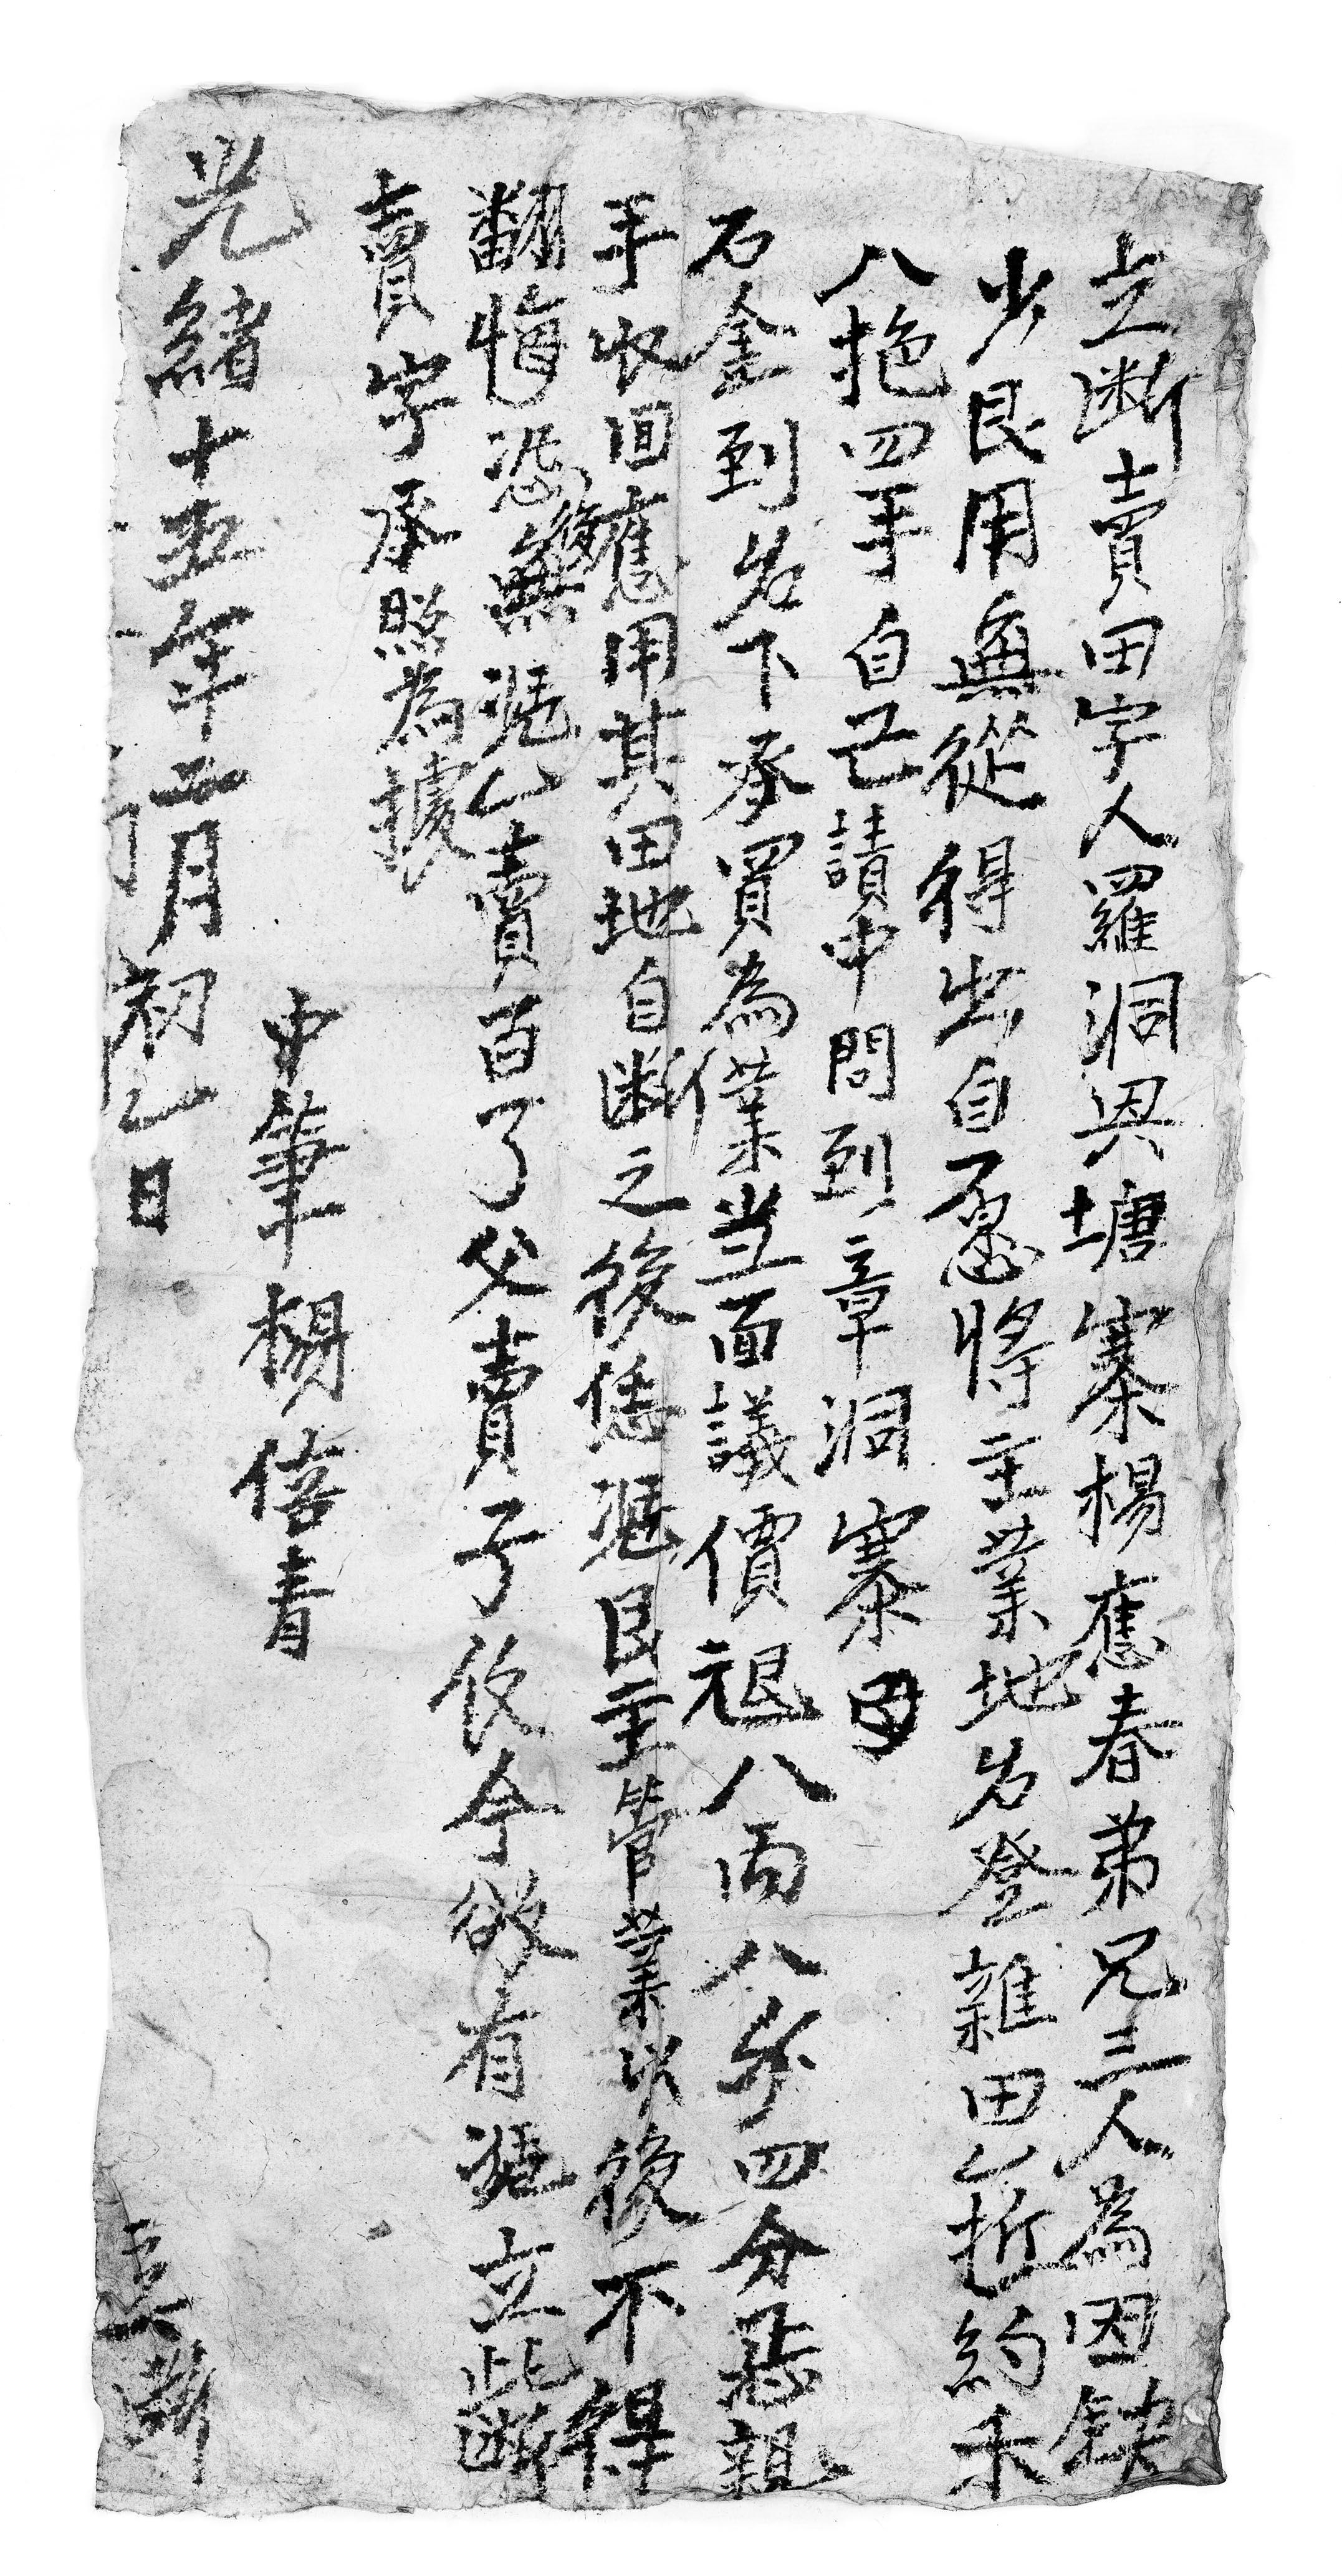 立断賣田字人羅洞與塘寨楊應春弟兄三人為因缺
少艮用無從得出自愿將主業地名登雜田乙坵約禾
八抱四手自己請中問到章洞寨
石金到名下承買為業当面議價八両八分四分親
手收回應用其田地自断之後凴艮主管業以後不得
翻悔恐後無凴乙賣百了父賣子休今欲有凴立此断
賣字承照為據
中筆楊信青
光緒十五年二月初乙日
立断